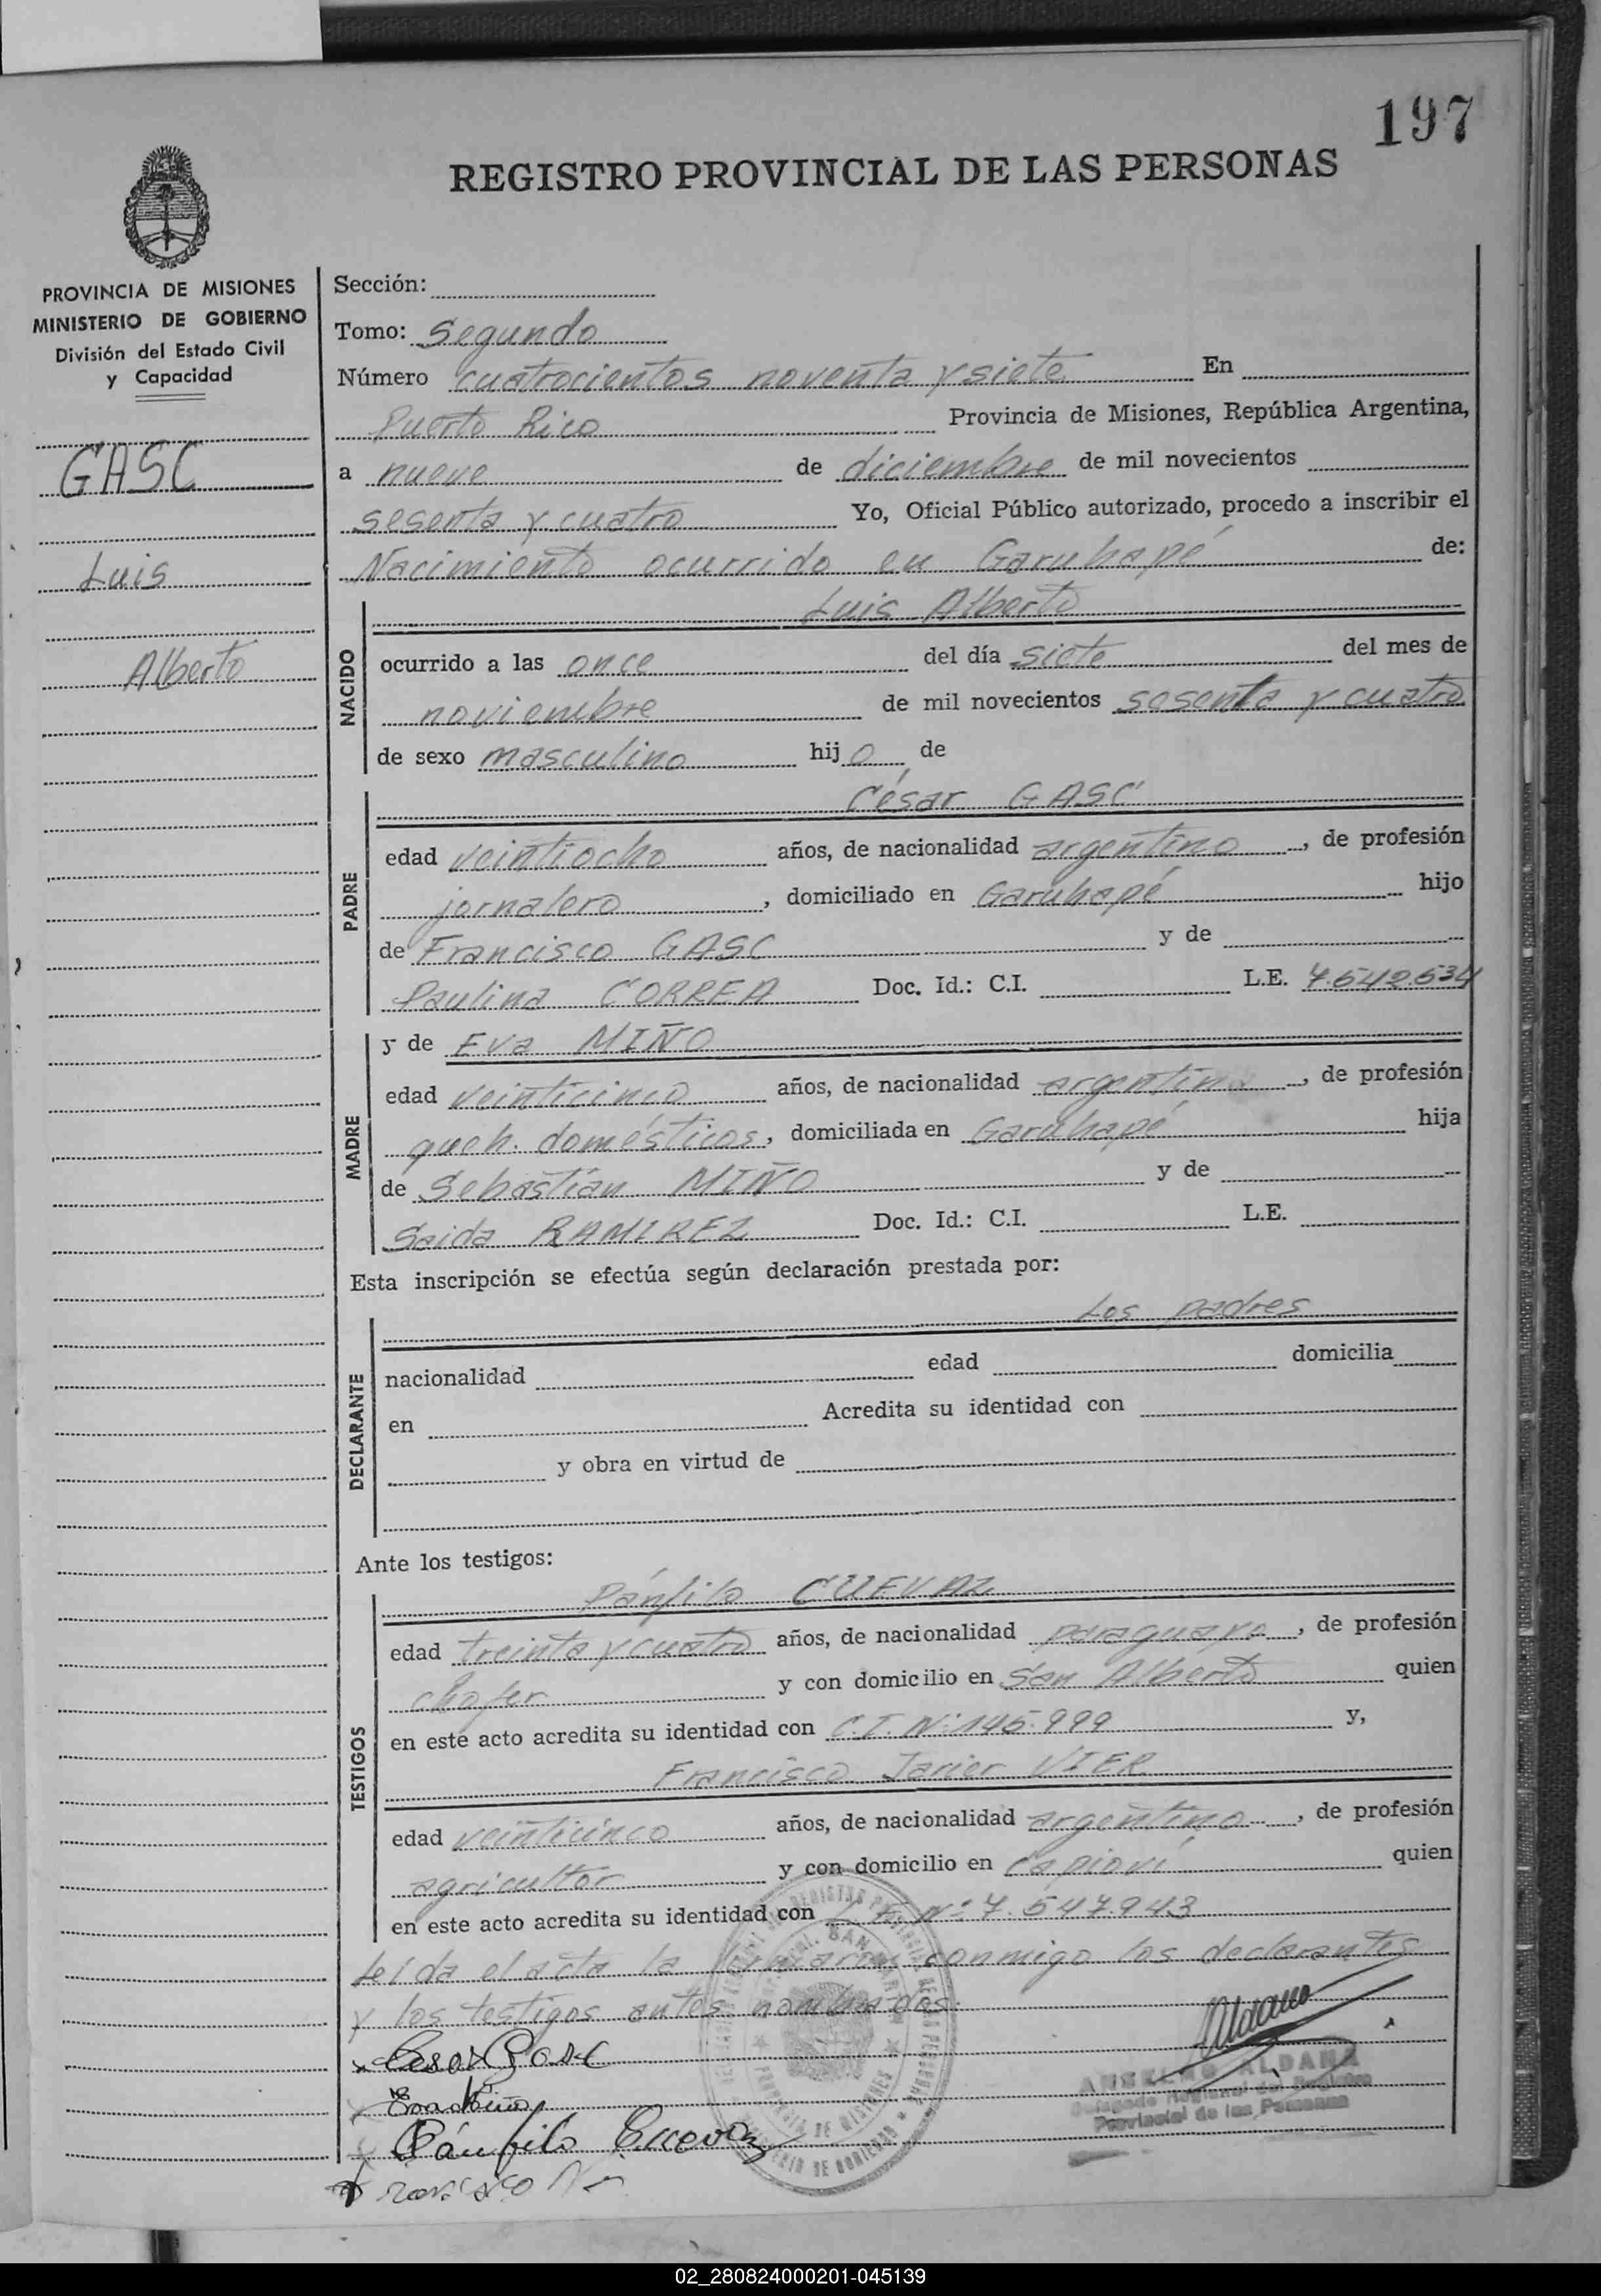 197
REGISTRO PROVINCIAL DE LAS PERSONAS
PROVINCIA DE MISIONES
MINISTERIO DE GOBIERNO
División del Estado Civil
y Capacidad
GASC
Luis
Alberto
Sección:
Tomo: Segundo
Número cuatrocientos noventa y siete En
Puerto Rico Provincia de Misiones, República Argentina,
a nueve de diciembre de mil novecientos
sesenta y cuatro Yo, Oficial Público autorizado, procedo a inscribir el
Nacimiento ocurrido en Garuhapé de:
NACIDO
Luis Alberto
ocurrido a las once del día siete del mes de
noviembre de mil novecientos sesenta y cuatro
de sexo masculino hijo de
PADRE
César GASC
edad veintiocho años, de nacionalidad argentino, de profesión
jornalero, domiciliado en Garuhapé hijo
de Francisco GASC y de
Paulina CORREA Doc. Id.: C.I. L.E. 7.542.534
MADRE
y de Eva MIÑO
edad veinticinco años, de nacionalidad argentina, de profesión
queh. domésticos, domiciliada en Garuhapé hija
de Sebastián MIÑO y de
Saida RAMIREZ Doc. Id.: C.I. L.E.
Esta inscripción se efectúa según declaración prestada por:
DECLARANTE
Los padres
nacionalidad edad domicilia
en Acredita su identidad con
y obra en virtud de
Ante los testigos:
TESTIGOS
Pánfilo CUEVAZ
edad treinta y cuatro años, de nacionalidad paraguayo, de profesión
chofer y con domicilio en San Alberto quien
en este acto acredita su identidad con C.I. Nº 145.999 y,
Francisco Javier VIER
edad veinticinco años, de nacionalidad argentino, de profesión
agricultor y con domicilio en Capioví quien
en este acto acredita su identidad con L.E. Nº 7.547.943
Leída el acta la firmaron conmigo los declarantes
y los testigos antes nombrados.
Cesar Gasc
Eva Miño
Pánfilo Cuevaz
ANSELMO ALDANA
Delegado Regional del Registro
Provincial de las Personas
02_280824000201-045139